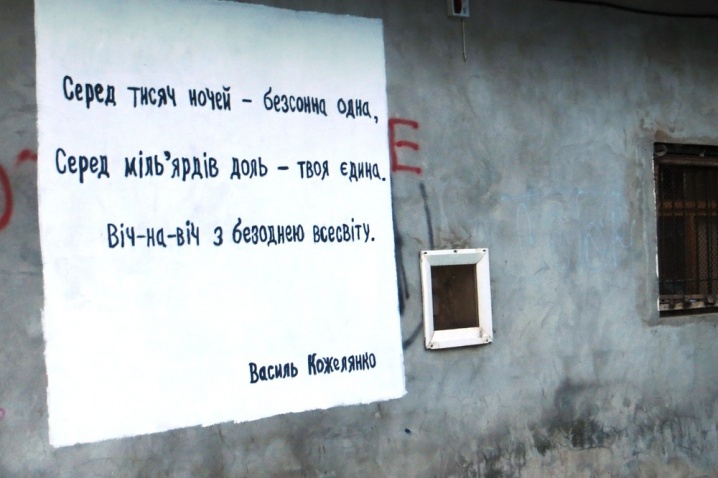 Серед тисяч ночей – безсонна одна,
Серед міль'ярдів доль – твоя єдина.
Віч-на-віч з безоднею всесвіту.
Василь Кожелянко
Е